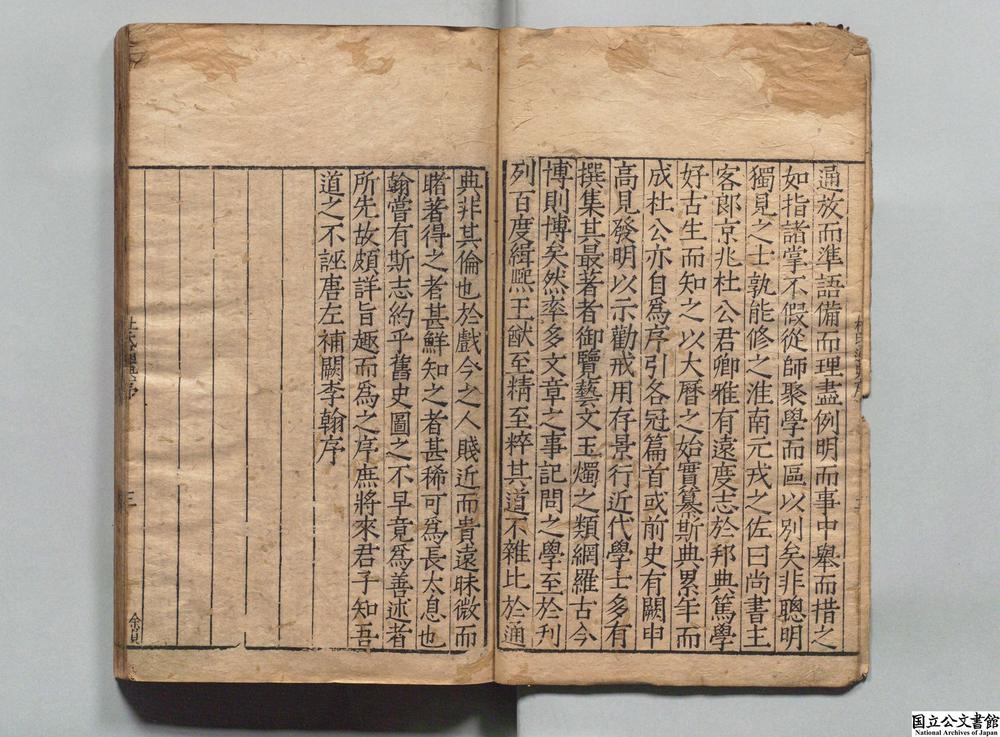 通放而準語備而理盡例明而事中舉而措之
如指諸掌不假從師聚學而區以別矣非聰明
獨見之士孰能修之淮南元戎之佐曰尚書主
客郎京兆杜公君卿雅有遠度志於邦典篤學
好古生而知之以大曆之始實纂斯典累年而
成杜公亦自爲序引各冠篇首或前史有闕申
高見發明以示勸戒用存景行近代學士多有
撰集其最著者御覽藝文玉燭之類網羅古今
博則博矣然率多文章之事記問之學至於刋
列百度緝熈王猷至精至粹其道不雜比於通
典非其倫也於戲今之人賤近而貴遠昧微而
睹著得之者甚鮮知之者甚稀可爲長太息也
翰嘗有斯志約乎舊史圖之不早竟爲善述者
所先故頗詳旨趣而爲之序庶將來君子知吾
道之不誣唐左補闕李翰序
三
国立公文書館
National Archives of Japan